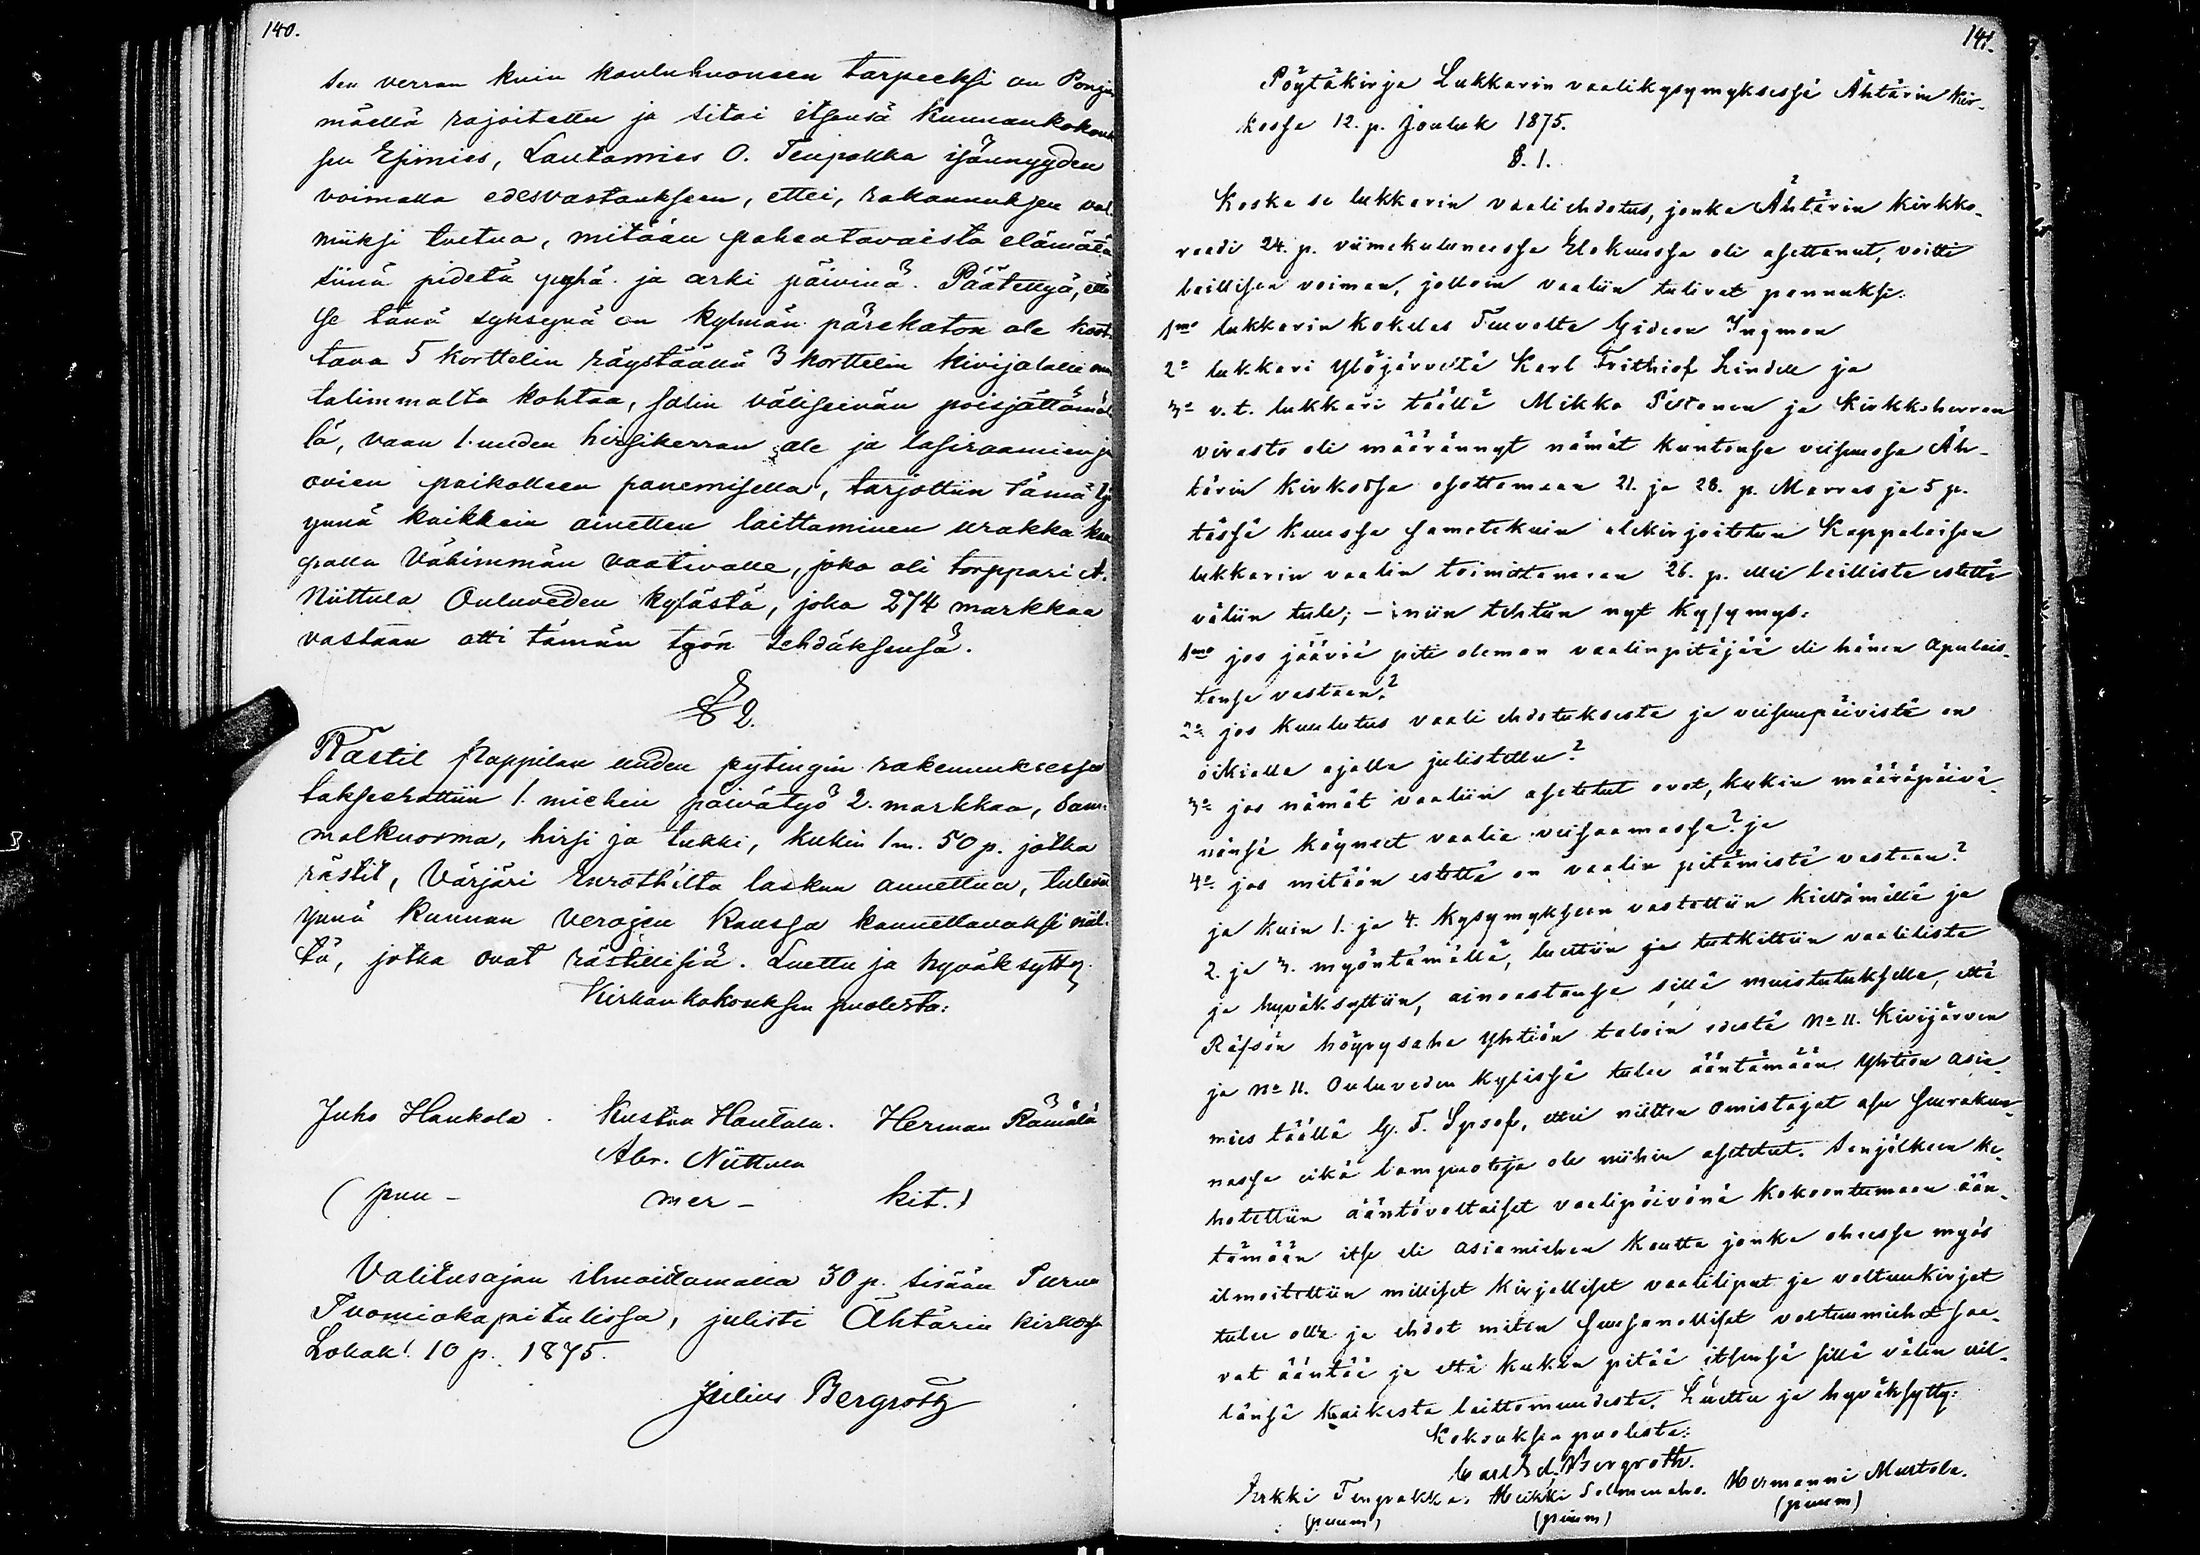 140.
sen verran kuin kouluhuoneen tarpeeksi on Ponjan
mäellä rajoitettu ja sitoi itsensä Kunnankokouk
sen Esimies, Lautamies O. Teupakka isännyyden
voimalla edesvastaukseen, ettei, rakennuksen val
miiksi tultua, mitään pahantavaista elämätä
siinä pidetä pyhä ja arki päivinä. Päätettyä, että
se tänä syksynä on kylmän pärekaton ale
tava 5 korttelin räystäällä 3 korttelin kivijalalle
talimmalta kohtaa, salin väliseinän poisjättämäl
lä, vaan 1 uuden hirsikerran ale ja lasiraamien ja
ovien paikalleen panemisella, tarjottiin tämä työ
ynnä kaikkein ainetten laittaminen urakka kau
palla Vähimmän vaativalle, joka oli torppari A.
Niittula Ouluveden kylästä, joka 274 markkaa
vastaan otti tämän työn tehdäksensä.
§ 2.
Rästit Pappilan uuden pytingin rakennuksessa
takseerattiin 1. miehen päivätyö 2. markkaa, Sam-
malkuorma, hirsi ja tukki, kukin 1 m. 50 p. jotka
rästit, Värjäri laskun annettua, tulevat
ynnä kunnan verojen kanssa kannettavaksi niil-
tä, jotka ovat rästillisiä. Luettu ja hyväksytty
Kirkonkokouksen puolesta:
Juho Haukola. Kustaa Hautala. Herman Rämälä
Abr. Niittula
(puu- mer- kit.)
Valitusajan ilmoittamalla 30 p. sisään Turun
Tuomiokapitulissa, julisti Ähtärin kirkossa
Lokak. 10 p. 1875.
Julius Bergroth
141.
Pöytäkirja Lukkarin vaalikysymyksessä Ähtärin Kir-
kossa 12. p. Jouluk 1875.
§. 1.
Koska se lukkarin vaaliehdotus, jonka Ähtärin Kirkko-
raadi 24. p. viimekuluneessa Elokuussa oli asettanut, voitti
laillisen voiman, jolloin vaaliin tulivat pannuksi:
1mo lukkarin kokelas Turvolta Gideon Ingman
2o lukkari Ylöjärveltä Karl Frithiof Lindell ja
3o v.t. lukkari täällä Mikko Pistonen ja Kirkkoherran
virasto oli määrännyt nämät kuntonsa veisuussa Äh-
tärin Kirkossa osottamaan 21. ja 28. p. Marras ja 5 p.
tässä kuussa sametekuin alekirjoitetun Kappelaisen
lukkarin vaalin toimittamaan 26. p. ellei laillista estettä
väliin tule; – niin tehtiin nyt kysymys:
1mo jos jääviä piti oleman vaalinpitäjää eli hänen apulais-
tansa vastaan?
2o jos kuulutus vaali ehdotuksesta ja veisuupäivistä on
oikialla ajalla julistettu?
3o jos nämät vaaliin asetetut ovat, kukin määräpäivä-
nänsä käyneet vaalia veisaamassa? ja
4o jos mitään estettä on vaalin pitämistä vastaan?
ja kuin 1. ja 4. kysymykseen vastattiin kieltämällä ja
2. ja 3. myöntämällä, luettiin ja tutkittiin vaalilista
ja hyväksyttiin, ainoastansa sillä muistutuksella, että
Räfsön höyrysaha Yhtiön taloin edestä No 11. Kivijärven
ja No 11. Ouluveden kylissä tulee ääntämään Yhtiön asia-
mies täällä G. F. Sysof, ettei niitten omistajat asu Seurakun-
nassa eikä lampuoteja ole niihin asetetut. Senjälkeen ke-
hotettiin ääntövaltaiset vaalipäivänä kokoontumaan ään-
tämään itse eli asiamiehen kautta jonka ohessa myös
ilmoitettiin milliset kirjalliset vaaliliput ja valtuukirjat
tulee olla ja ehdot miten suusanalliset valtuumiehet saa-
vat ääntää ja että kukin pitää itsensä sillä välin vil-
länsä kaikesta laittomuudesta. Luettu ja hyväksytty:
Kokouksen puolesta:
Carl Ed. Bergroth.
Erkki Teupakka. Heikki Salmenaho. Hermanni Murtola.
(puum) (puum) (puum)